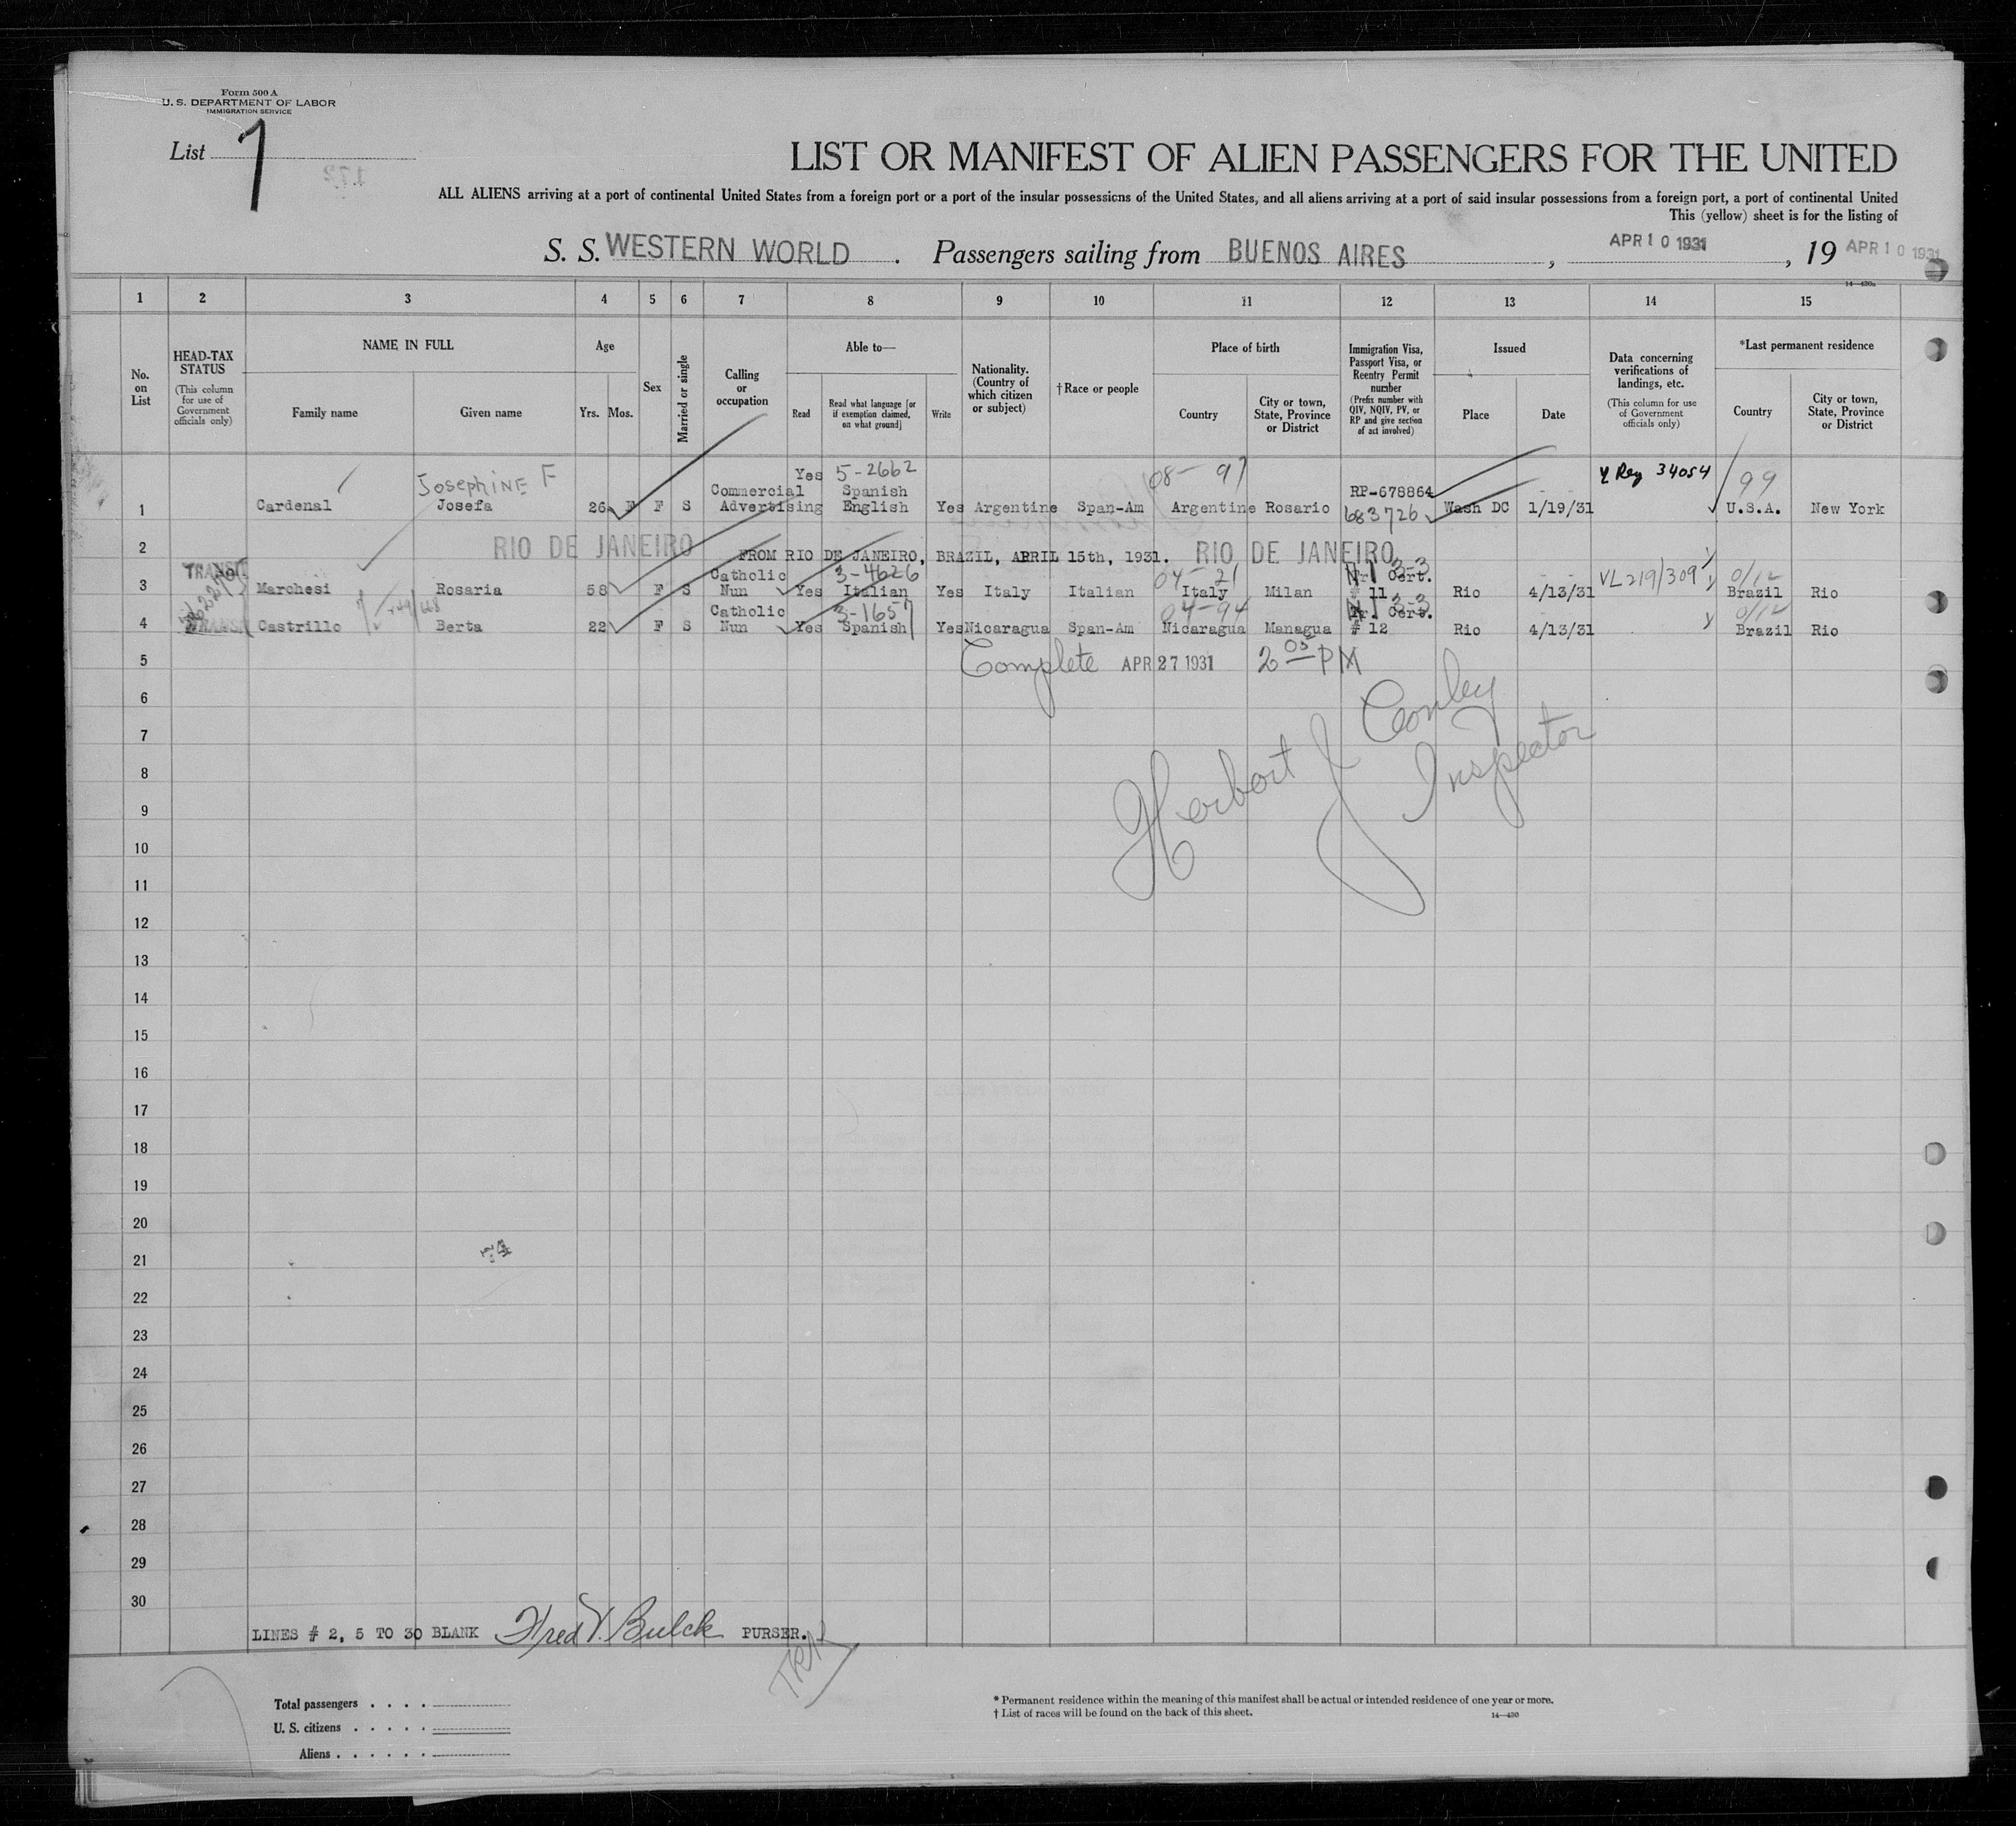 Form 500 A
U. S. DEPARTMENT OF LABOR
IMMIGRATION SERVICE
List 7
LIST OR MANIFEST OF ALIEN PASSENGERS FOR THE UNITED
ALL ALIENS arriving at a port of continental United States from a foreign port or a port of the insular possessions of the United States, and all aliens arriving at a port of said insular possessions from a foreign port, a port of continental United
This (yellow) sheet is for the listing of
S. S. WESTERN WORLD . Passengers sailing from BUENOS AIRES , APR 10 1931 , 19 APR 10 1931
14—430a
1 2 3 4 5 6 7 8 9 10 11 12 13 14 15
No. on List
HEAD-TAX STATUS
(This column for use of Government officials only)
NAME IN FULL
Family name
Given name
Age
Yrs. Mos.
Sex
Married or single
Calling or occupation
Able to—
Read
Read what language [or if exemption claimed, on what ground]
Write
Nationality. (Country of which citizen or subject)
† Race or people
Place of birth
Country
City or town, State, Province or District
Immigration Visa, Passport Visa, or Reentry Permit number
(Prefix number with QIV, NQIV, PV, or RP and give section of act involved)
Issued
Place
Date
Data concerning verifications of landings, etc.
(This column for use of Government officials only)
*Last permanent residence
Country
City or town, State, Province or District
Josephine F Yes 5-2662 08- 97 Reg 34054 99
Commercial Spanish RP-678864
1 Cardenal Josefa 26 F F S Advertising English Yes Argentine Span-Am Argentine Rosario 683726 Wash DC 1/19/31 U.S.A. New York
2 RIO DE JANEIRO FROM RIO DE JANEIRO, BRAZIL, APRIL 15th, 1931. RIO DE JANEIRO
TRANSIT Catholic 3-4626 04- 21 Cert. 3-3 VL 219/309 0/12
3 Marchesi Rosaria 58 F S Nun Yes Italian Yes Italy Italian Italy Milan # 11 Rio 4/13/31 Brazil Rio
Catholic 3-1657 04-94 Cert. 3-3 0/12
4 Castrillo Berta 22 F S Nun Yes Spanish Yes Nicaragua Span-Am Nicaragua Managua # 12 Rio 4/13/31 Brazil Rio
5 Complete APR 27 1931 2 05 PM
6
7
8
9
10
11
12
13
14
15
16
17
18
19
20
21
22
23
24
25
26
27
28
29
30
Herbert J Conley
Inspector
LINES # 2, 5 TO 30 BLANK Fred V. Bulck PURSER.
Total passengers . . . .
U. S. citizens . . . . .
Aliens . . . . . .
* Permanent residence within the meaning of this manifest shall be actual or intended residence of one year or more.
† List of races will be found on the back of this sheet.
14—430